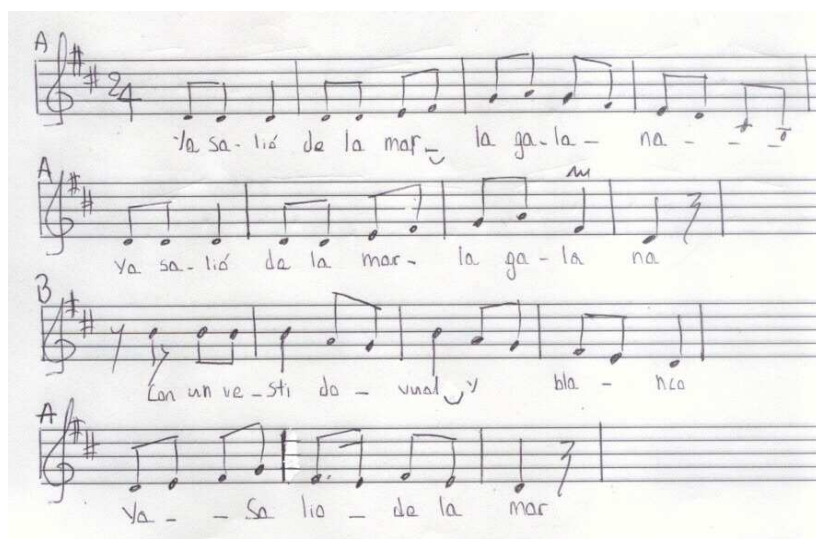 A
2/4
Ya sa-lió de la mar_ la ga-la- na - - -
A
Ya sa-lió de la mar- la ga-la na
B
Con un ve-sti do - y bla - nco
A
Ya - - Sa lio - de la mar